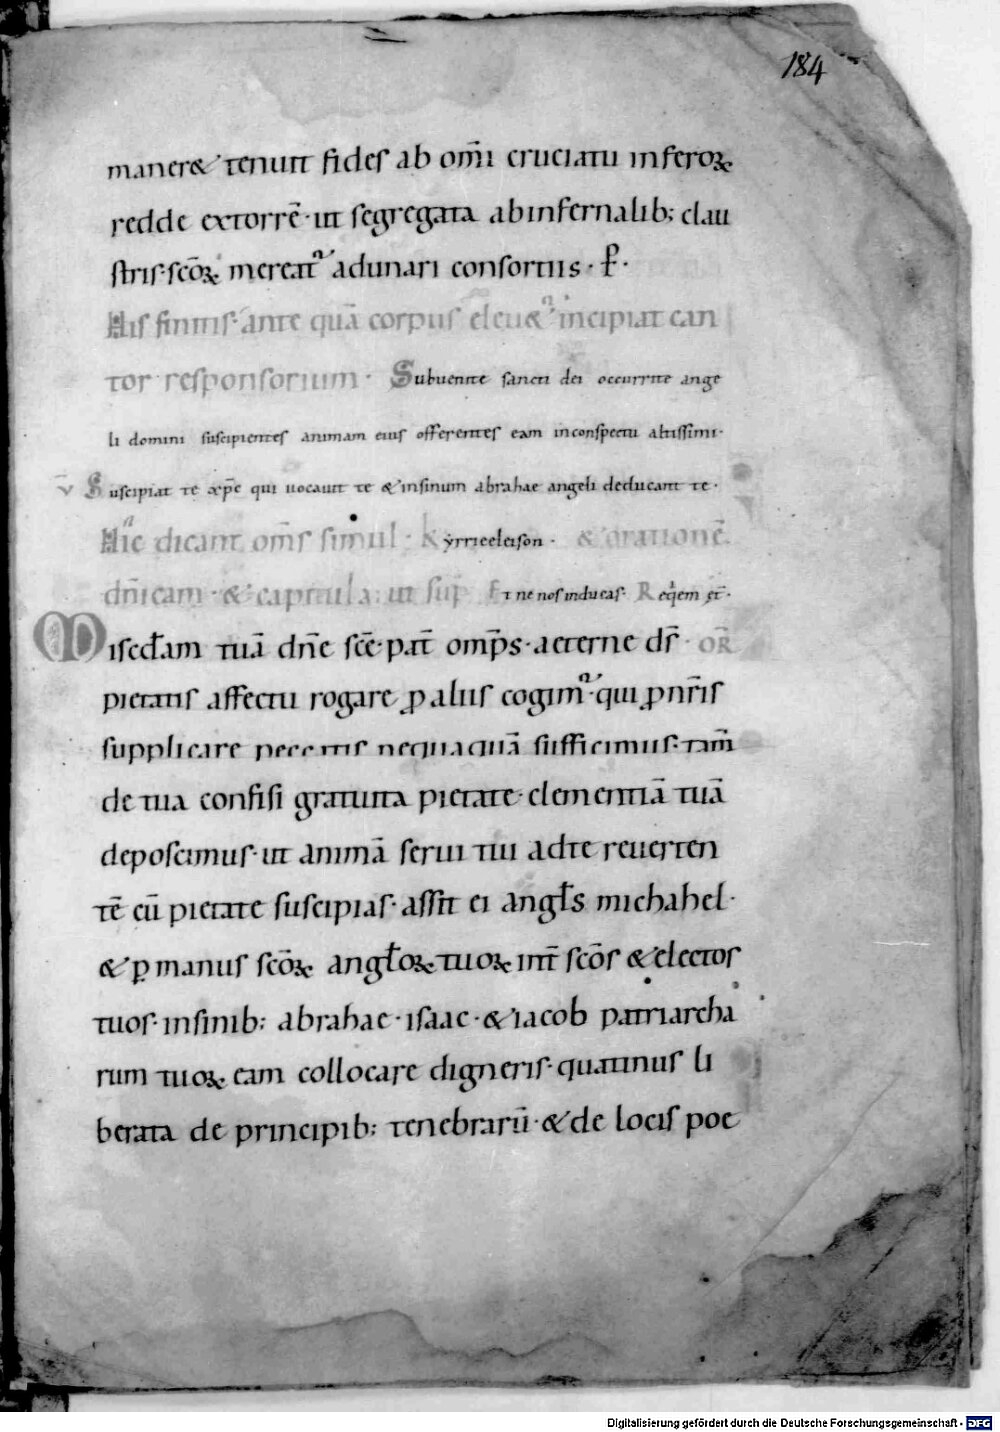 184
maner& tenuit fides ab om̅i cruciatu inferoꝝ
redde extorre̅· ut segregata ab infernalib; clau
stris· sc̅oꝝ mereat᷑ adunari consortiis· P̅·
His finitis· ante qua̅ corpus eleu&᷑ incipiat can
tor responsorium· Subuenite sancti dei occurrite ange
li domini suscipientes animam eius offerentes eam in conspectu altissimi·
V̅ Suscipiat te xp̅e qui uocauit te & in sinum abrahae angeli deducant te·
Hic dicant om̅s simul· Kyrrieeleison· & oratione̅
dn̅icam· & capitula· ut sup̅ Et ne nos inducas· Req̇em &̅·
Misċd̅am tua̅ dn̅e sc̅e· pat̅ omp̅s· aeterne ds̅ OR̅
pietatis affectu rogare ꝑ aliis cogim᷒· qui ꝑ nr̅is
supplicare peccatis nequaqua̅ sufficimus· tam̅
de tua confisi gratuita pietate· clementia̅ tua̅
deposcimus· ut anima̅ serui tui ad te reuerten
te̅ cu̅ pietate suscipias· assit ei angl̅s michahel·
& ꝑ manus sc̅oꝝ angl̅oꝝ tuoꝝ int̅ sc̅os & electos
tuos· in sinib; abrahae· isaac· & iacob patriarcha
rum tuoꝝ eam collocare digneris· quatinus li
berata de principib; tenebraru̅· & de locis poe
Digitalisierung gefördert durch die Deutsche Forschungsgemeinschaft - DFG